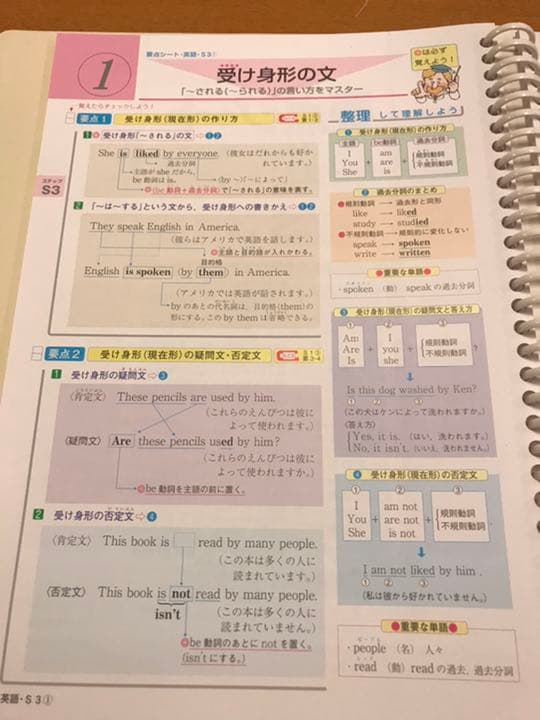 要点シート・英語・S3①
1
受け身形の文
「～される(～られる)」の言い方をマスター
◎は必ず
覚えよう!
覚えたらチェックしよう!
ステップ
S3
要点1 受け身形(現在形)の作り方
1 受け身形「～される」の文⇨①②
She is liked by everyone.(彼女はだれからも好か
れています。)
過去分詞
主語がsheだから,
be動詞はis。
(by ～)(～によって)
◎〈be動詞+過去分詞〉で「～される」の意味を表す。
2 「～は…する」という文から,受け身形への書きかえ⇨①②
They speak English in America.
(彼らはアメリカで英語を話します。)
◎主語と目的語が入れかわる。
目的格
English is spoken (by them) in America.
(アメリカでは英語が話されます。)
byのあとの代名詞は,目的格(them)の
形にする。このby themは省略できる。
要点2 受け身形(現在形)の疑問文・否定文
1 受け身形の疑問文⇨③
〈肯定文〉 These pencils are used by him.
(これらのえんぴつは彼に
よって使われます。)
〈疑問文〉 Are these pencils used by him?
(これらのえんぴつは彼に
よって使われますか。)
◎be動詞を主語の前に置く。
2 受け身形の否定文⇨④
〈肯定文〉 This book is read by many people.
(この本は多くの人に
読まれています。)
〈否定文〉 This book is not read by many people.
isn't
(この本は多くの人に
読まれていません。)
◎be動詞のあとにnotを置く。
(isn'tにする。)
整理して理解しよう
① 受け身形(現在形)の作り方
主語 be動詞 過去分詞
I
You
She
+
am
are
is
+
規則動詞
不規則動詞
② 過去分詞のまとめ
●規則動詞 → 過去形と同形
like → liked
study → studied
●不規則動詞 → 規則的に変化しない
speak → spoken
write → written
●重要な単語●
・spoken (動) speakの過去分詞
③ 受け身形(現在形)の疑問文と答え方
① ② ③
Am
Are
Is
+
I
you
she
+
規則動詞
不規則動詞
?
Is this dog washed by Ken?
① ② ③
(この犬はケンによって洗われますか。)
〈答え方〉
Yes, it is. (はい,洗われます。)
No, it isn't. (いいえ,洗われません。)
④ 受け身形(現在形)の否定文
① ② ③
I
You
She
+
am not
are not
is not
+
規則動詞
不規則動詞
I am not liked by him.
① ② ③
(私は彼から好かれていません。)
●重要な単語●
・people (名) 人々
・read (動) readの過去,過去分詞
英語・S3①